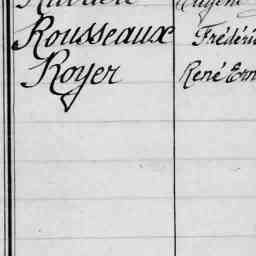 Rousseaux Frédéri
Royer René Ern